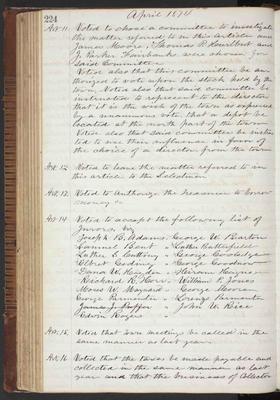 224
April 1874
Art. 11. Voted to choose a committee to investigate
the matter referred to in this article and
James Moore, Thomas P. Hurlbut and
J. Parker Fairbank were chosen for
said Committee.
Voted also that this committee be au-
thorized to vote upon the stock held by the
town, Voted also that said committee be
instruction to represent to the director
that it is the wish of the town as expressed
by a unanimous vote that a depot be
located at the north part of the town.
Voted also that said committee be instruc-
ted to use their influence in favor of
the choice of a director from the town
Art. 12. Voted to leave the matter referred to in
this article to the Selectmen
Art. 13. Voted to Authorize the Treasurer to borrow
money &c
Art. 14. Voted to accept the following list of
Jurors, viz
Joseph B. Adams George W. Barton
Samuel Bent Luther Butterfield
Luther S. Cutting George Goodridge
Elbridge Godwin George Goodnow
Dana W. Hayden Hiram Haynes
Richard R. Horr William F. Jones
Moses W. Maynard George Moore
George Parmenter Lorenzo Parmenter
James Puffer John W. Rice
Edwin Rogers
Art. 15. Voted that town meetings be called in the
same manner as last year.
Art. 16. Voted that the taxes be made payable and
collected in the same manner as last
year and that the business of Collector